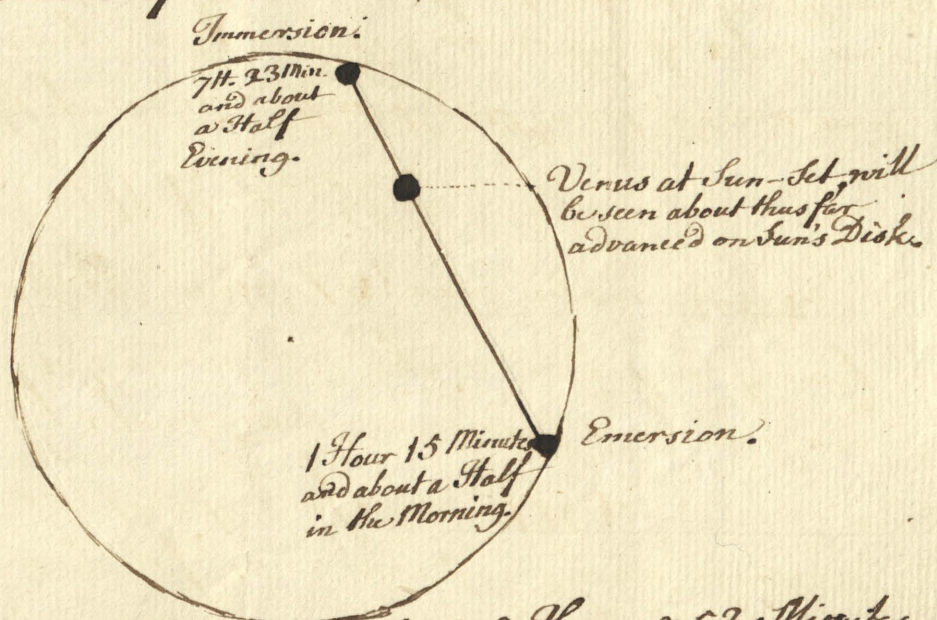 Immersion.
7H. 23 Min.
and about
a Half
Evening.
Venus at Sun-Set, will
be seen about thus far
advanced on Sun's Disk.
Emersion.
1 Hour 15 Minutes
and about a Half
in the Morning.
52 Minutes